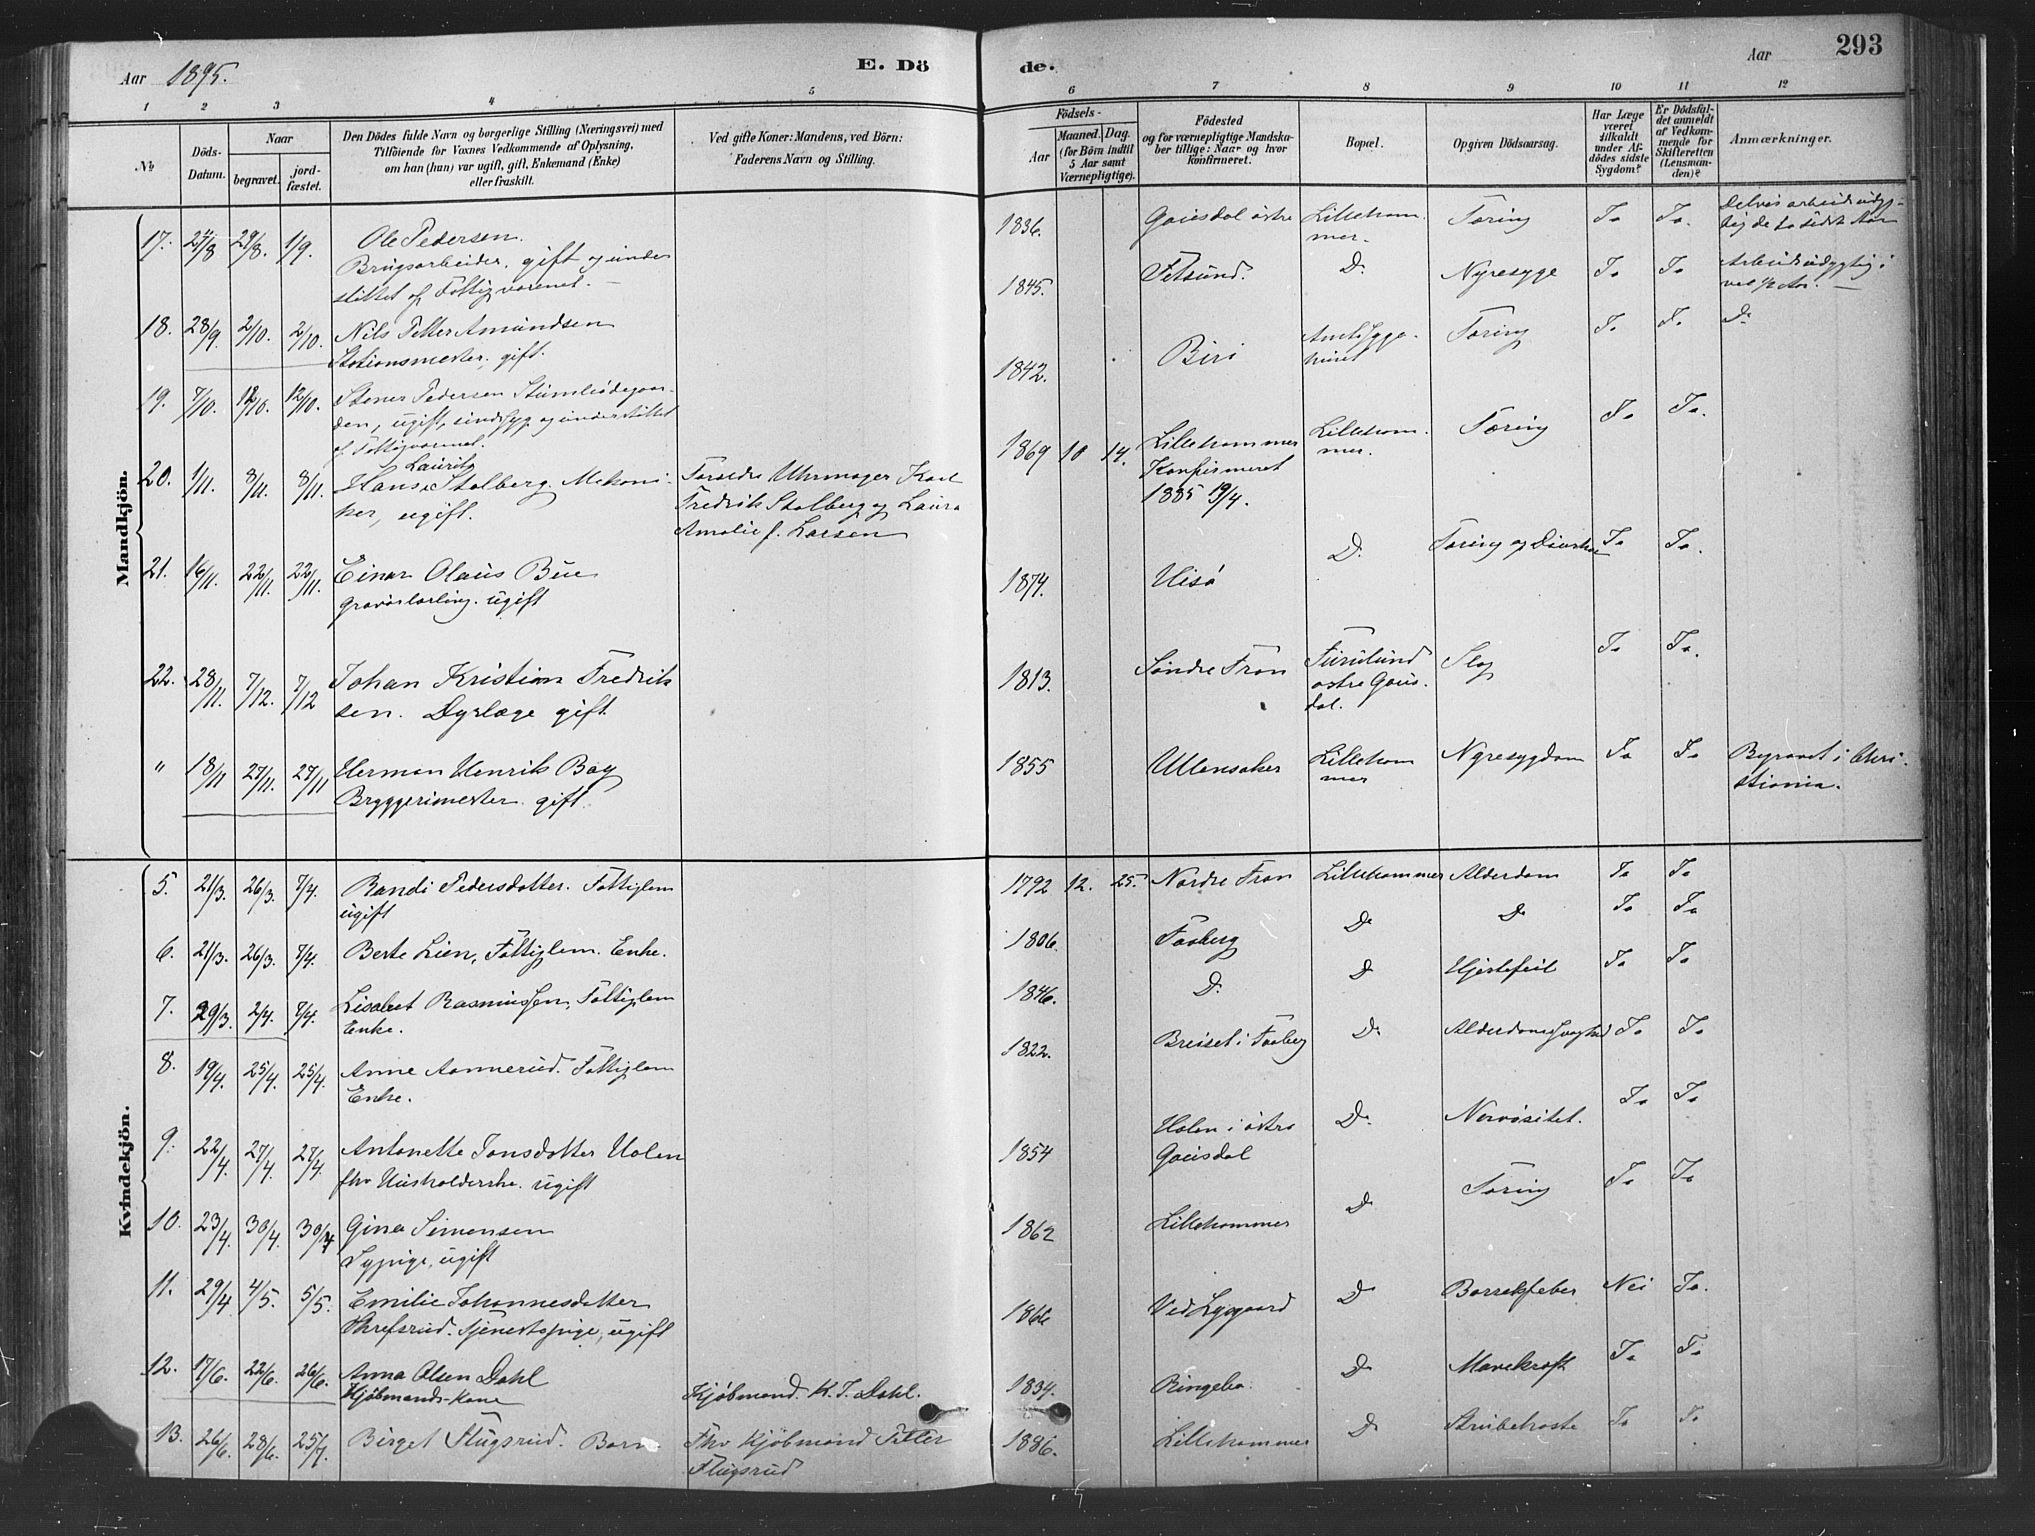 Aar 1895.
E. Dö
de.
Aar
293
1 2 3 4 5 6 7 8 9 10 11 12
№
Döds-Datum.
Naar
begravet.
jord-fæstet.
Den Dödes fulde Navn og borgerlige Stilling (Næringsvei) med
Tilföiende for Voxnes Vedkommende af Oplysning,
om han (hun) var ugift, gift, Enkemand (Enke)
eller fraskilt.
Ved gifte Koner: Mandens, ved Börn:
Faderens Navn og Stilling.
Födsels-
Aar
Maaned. Dag.
(for Börn indtil
5 Aar samt
Værnepligtige).
Födested
og for værnepligtige Mandska-
ber tillige: Naar og hvor
konfirmeret.
Bopæl.
Opgiven Dödsaarsag.
Har Læge
været
tilkaldt
under Af-
dödes sidste
Sygdom?
Er Dödsfal-
det anmeldt
af Vedkom-
mende for
Skifteretten
(Lensman-
den)?
Anmærkninger.
Mandkjön.
17. 24/8 29/8. 1/9. Ole Pedersen.
Brugsarbeider, gift og under
støttet af Fattigvæsenet.
1836. Gausdal østre Lilleham
mer. Tæring Ja Ja. Delvis arbeidsudyg-
tig de to sidste Aar
18. 28/9 2/10. 2/10. Nils Petter Amundsen
Stationsmester, gift.
1845. Fetsund. Do Nyresyge Ja Ja Arbeidsudygtig i
ved 1/2 Aar.
19. 7/10. 12/10. 12/10. Stener Pedersen Stumliødegaar-
den, ugift, sindssyg og understøttet
af Fattigvæsenet.
1842. Biri Amtssyge-
huset Tæring Ja Ja Do
20. 1/11. 8/11. 8/11. Hans Laurits Stalberg. Mekani-
ker, ugift.
Forældre Uhrmager Karl
Fredrik Stalberg og Laura
Amalie f. Larsen
1869 10 14. Lillehammer
Konfirmeret
1885 19/4. Lilleham
mer. Tæring Ja Ja.
21. 16/11. 22/11. 22/11. Einar Olaus Bue
Gravørlærling. ugift
1874. Uisø Do Tæring og Ja Ja.
22. 28/11. 7/12. 7/12 Johan Kristian Fredrik
sen. Dyrlæge gift.
1813. Søndre Fron Furulund
østre Gaus-
dal. Slag Ja Ja.
" 18/11 27/11. 27/11 Herman Henrik Bay
Bryggerimester. gift.
1855 Ullensaker Lilleham
mer Nyresygdom Ja Ja Begravet i Chri-
stiania.
Kvindekjön.
5. 21/3. 26/3. 7/4. Randi Pedersdatter. Fattiglem
ugift
1792 12. 25. Nordre Fron Lillehammer Alderdom Ja Ja
6. 21/3. 26/3. 7/4. Berte Lien, Fattiglem. Enke.
1806. Faaberg Do Do Ja Ja
7. 29/3. 2/4. 7/4. Lisabet Rasmussen, Fattiglem
Enke.
1846. Do. Do Hjertefeil Ja Ja
8. 19/4. 25/4. 25/4. Anne Aannerud. Fattiglem
Enke.
1822. Breiset i Faaberg Do Alderdomssvaghed Ja Ja
9. 22/4. 27/4. 27/4 Antonette Jonsdatter Holen
fhv Husholderske. ugift
1854 Holen i østre
Gausdal Do Nervøsitet. Ja Ja
10. 23/4. 30/4. 30/4 Gina Simensen
Sypige, ugift
1862 Lillehammer Do Tæring Ja Ja
11. 29/4 4/5. 5/5. Emilie Johannesdatter
Skrefsrud. Tjenestepige, ugift
1866 Ved Lysgaard Do Barselfeber Nei Ja.
12. 17/6. 22/6. 26/6. Anna Olsen Dahl
Kjøbmands-Kone
Kjøbmand. K. J. Dahl.
1834. Ringebu. Do Mavekræft Ja Ja
13. 26/6. 28/6. 25/7. Birget Flugsrud. Barn
Fhv Kjøbmand Petter
Flugsrud
1886. Lillehammer Do Strubehoste Ja Ja